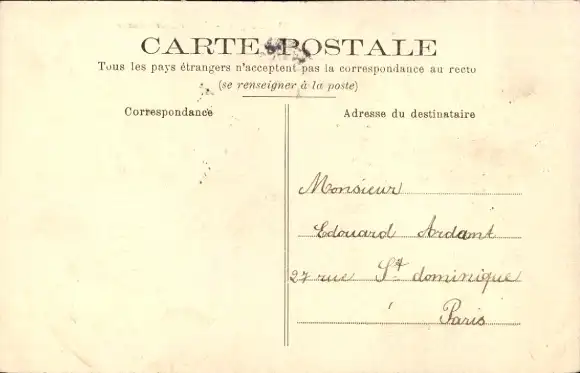 CARTE POSTALE
Tous les pays étrangers n'acceptent pas la correspondance au recto
(se renseigner à la poste)
Correspondance
Adresse du destinataire
Monsieur
Edouard Ardant
27 rue St dominique
à Paris